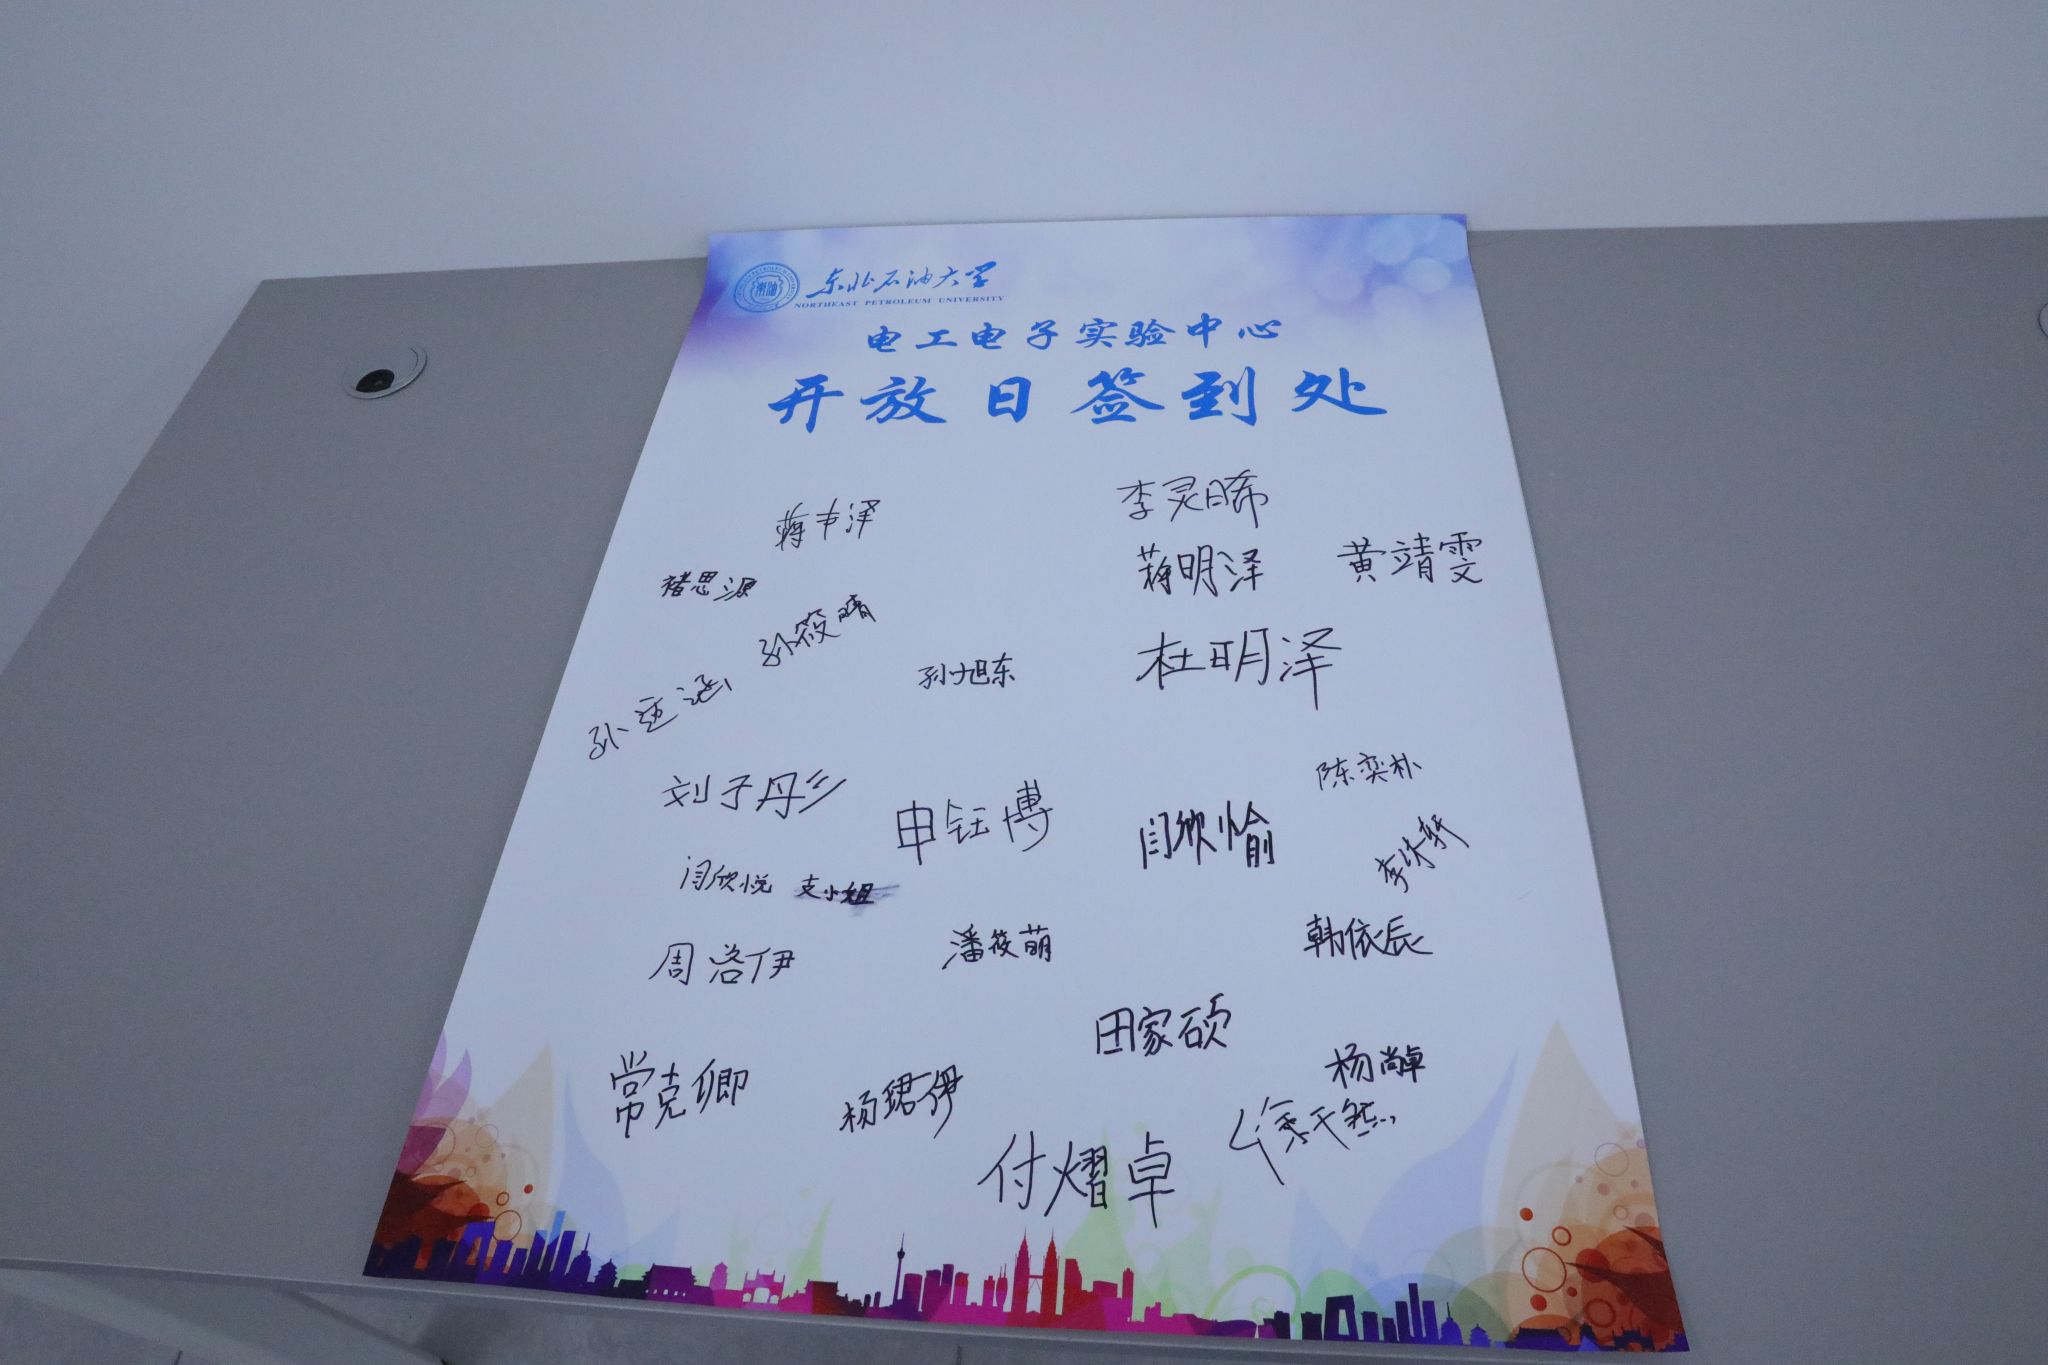 东北石油大学
NORTHEAST PETROLEUM UNIVERSITY
电工电子实验中心
开放日签到处
李灵晞
蒋丰泽
蒋明泽
黄靖雯
褚思源
孙筱晴
孙旭东
杜明泽
孙
刘子彤
申钰博
闫欣愉
陈奕朴
闫欣悦
支小姐
李沐轩
周洛伊
潘筱萌
韩依辰
田家硕
常克卿
杨珺伊
杨尚卓
付熠卓
徐千然